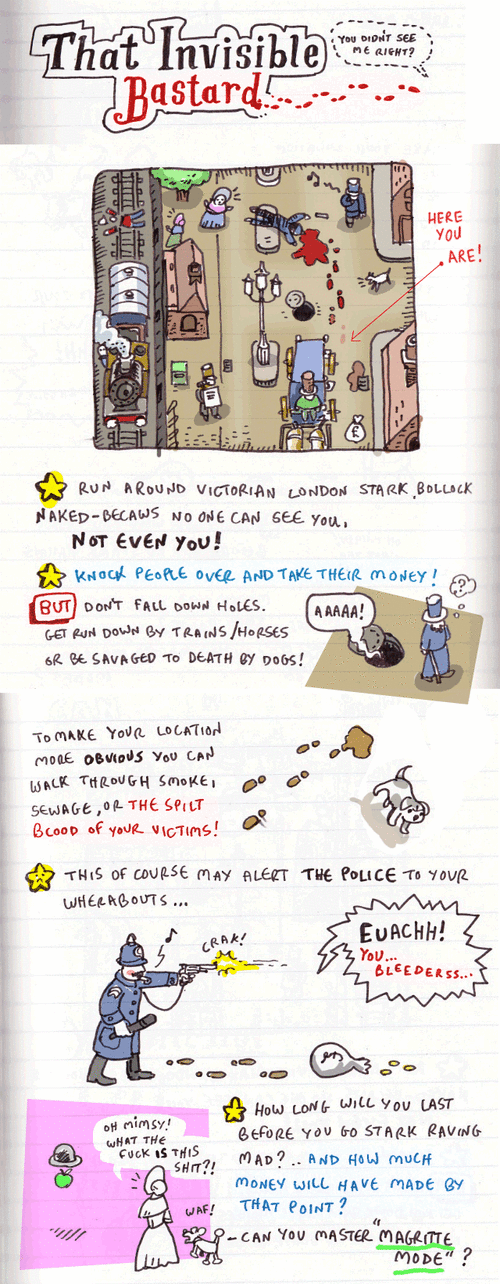 That Invisible
Bastard
YOU DIDN'T SEE
ME RIGHT?
HERE
YOU
ARE!
£
RUN AROUND VICTORIAN LONDON STARK BOLLOCK
NAKED-BECAWS NO ONE CAN SEE YOU,
NOT EVEN YOU!
KNOCK PEOPLE OVER AND TAKE THEIR MONEY!
BUT DON'T FALL DOWN HOLES.
GET RUN DOWN BY TRAINS/HORSES
OR BE SAVAGED TO DEATH BY DOGS!
AAAAA!
?
TO MAKE YOUR LOCATION
MORE OBVIOUS YOU CAN
WALK THROUGH SMOKE,
SEWAGE, OR THE SPILT
BLOOD OF YOUR VICTIMS!
THIS OF COURSE MAY ALERT THE POLICE TO YOUR
WHERABOUTS...
CRAK!
EUACHH!
YOU...
BLEEDERSS...
OH MIMSY!
WHAT THE
FUCK IS THIS
SHIT?!
WAF!
HOW LONG WILL YOU LAST
BEFORE YOU GO STARK RAVING
MAD?.. AND HOW MUCH
MONEY WILL HAVE MADE BY
THAT POINT?
- CAN YOU MASTER "MAGRITTE
MODE"?